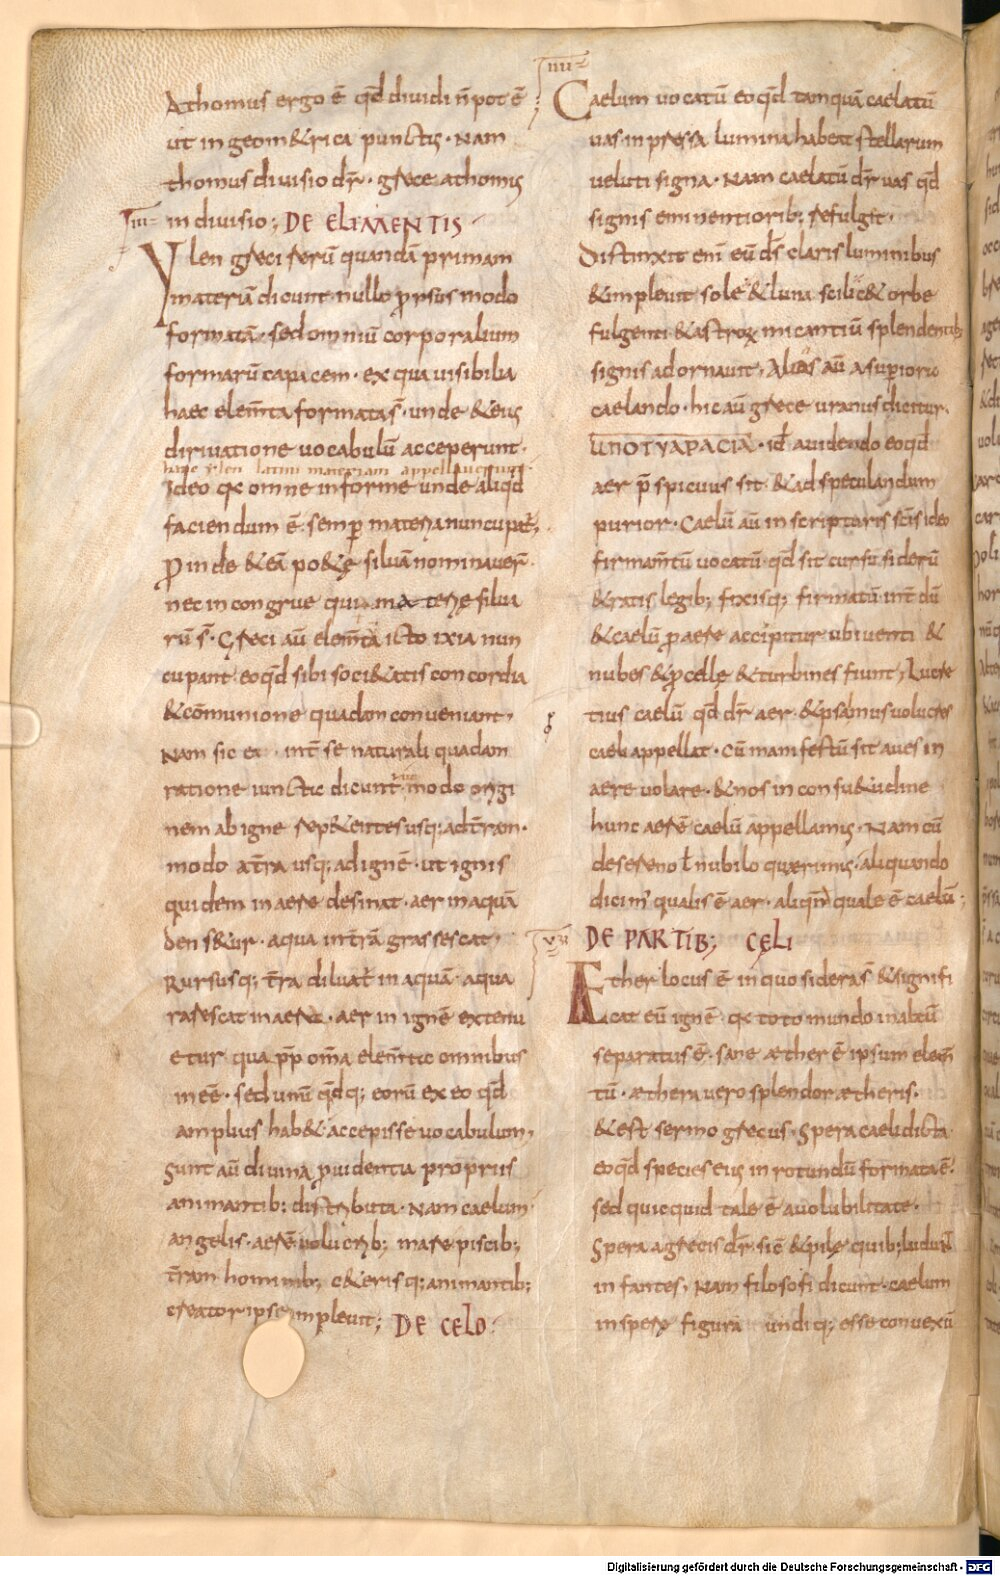 Athomus ergo ē qđ dividi ñ pot ē
ut in geom&rica punctis · Nam
thomus divisio dr̄ · grece athomis
iii in divisio; DE ELEMENTIS ·
Ylen greci rerū quandā primam
materiā dicunt · nullo prsus modo
formatā · sed omniū corporaliūm
formarū capacem · ex qua visibilia
haec elem̄ta formata s̄ · unde & eius
dirivatione vocabulū acceperunt ·
hanc ylen latini materiam appellaverunt
Ideo qɜ omne informe unde aliqđ
faciendum ē · semp materia nuncupat̄;
Proinde & eā po&ę silvā nominaver̄ ·
nec incongrue quia materię silva
rū s̄ · Gręci aū elem̄ta isto ixia nun
cupant · eo qđ sibi soci&atis concordia
& cōmunione quadam conveniant,
Nam sic et int̄ se naturali quadam
ratione iunctic dicunt̄ modo origi
nem ab igne rep&entes usq; ad t̄ram ·
modo a t̄ra usq; ad ignē · ut ignis
quidem in aere desinat · aer in aquā
dens&ur · aqua in t̄rā grassescat,
Rursusq; t̄ra diluat̄ in aquā · aqua
rarescat in aere · aer in ignē extenu
etur qua pp̄ om̄a elem̄tic omnibus
in eē · sed unū qđq; eorū ex eo qđ
amplius hab& accepisse vocabulum,
Sunt aū divina pvidentia propriis
animantib; distributa · Nam caelum
angelis · aerē volucrib; mare piscib;
t̄ram hominib; c&erisq; animantib;
creator ipse implevit; DE CELO ·
iiii
Caelum vocatū eo qđ tamquā caelatū
vas inpressa lumina habeat stellarum
veluti signa · Nam caelatū dr̄ vas qđ
signis eminentiorib; refulget ·
Distinxit eni eū ds̄ claris luminibus
& implevit sole & luna scilic& orbe
fulgenti & astroꝝ micantiū splendentib;
signis adornavit, Alias aū a superiore
caelando · hic aū grece uranus dicitur ·
UNOTYAPACIA · id̄ a videndo eo qđ
aer pspicuus sit · & ad speculandum
purior · Caelū aū in scripturis scīs ideo
firmam̄tū vocatū · qđ sit cursu siderū
& ratis legib; fixisq; firmatū int̄dū
& caelū p aere accipitur ubi venti &
nubes & pcellę & turbines fiunt, Lucre
tius caelū qđ dr̄ aer · & psalmus volucres
caeli appellat · Cū manifestū sit aves in
aere volare · & nos in consu&udine
hunc aerē caelū appellamus · Nam cū
de sereno ł nubilo quærimus · aliquando
dicim̄ qualis ē aer · aliqñ quale ē caelū;
v DE PARTIB; CĘLI
Aether locus ē in quo sidera s̄ & signifi
cat eū ignē qɜ toto mundo in altū
separatus ē · sane æther ē ipsum elem̄
tū · æthera vero splendor ætheris ·
& est sermo grecus · Spera caeli dicta
eo qđ species eius in rotundū formata ē ·
sed quicquid tale ē a volubilitate ·
Spera a grecis dr̄ · sic & pilę quib; ludunt
infantes, Nam filosofi dicunt · caelum
in sperę figurā undiq; esse convexū
Digitalisierung gefördert durch die Deutsche Forschungsgemeinschaft - DFG